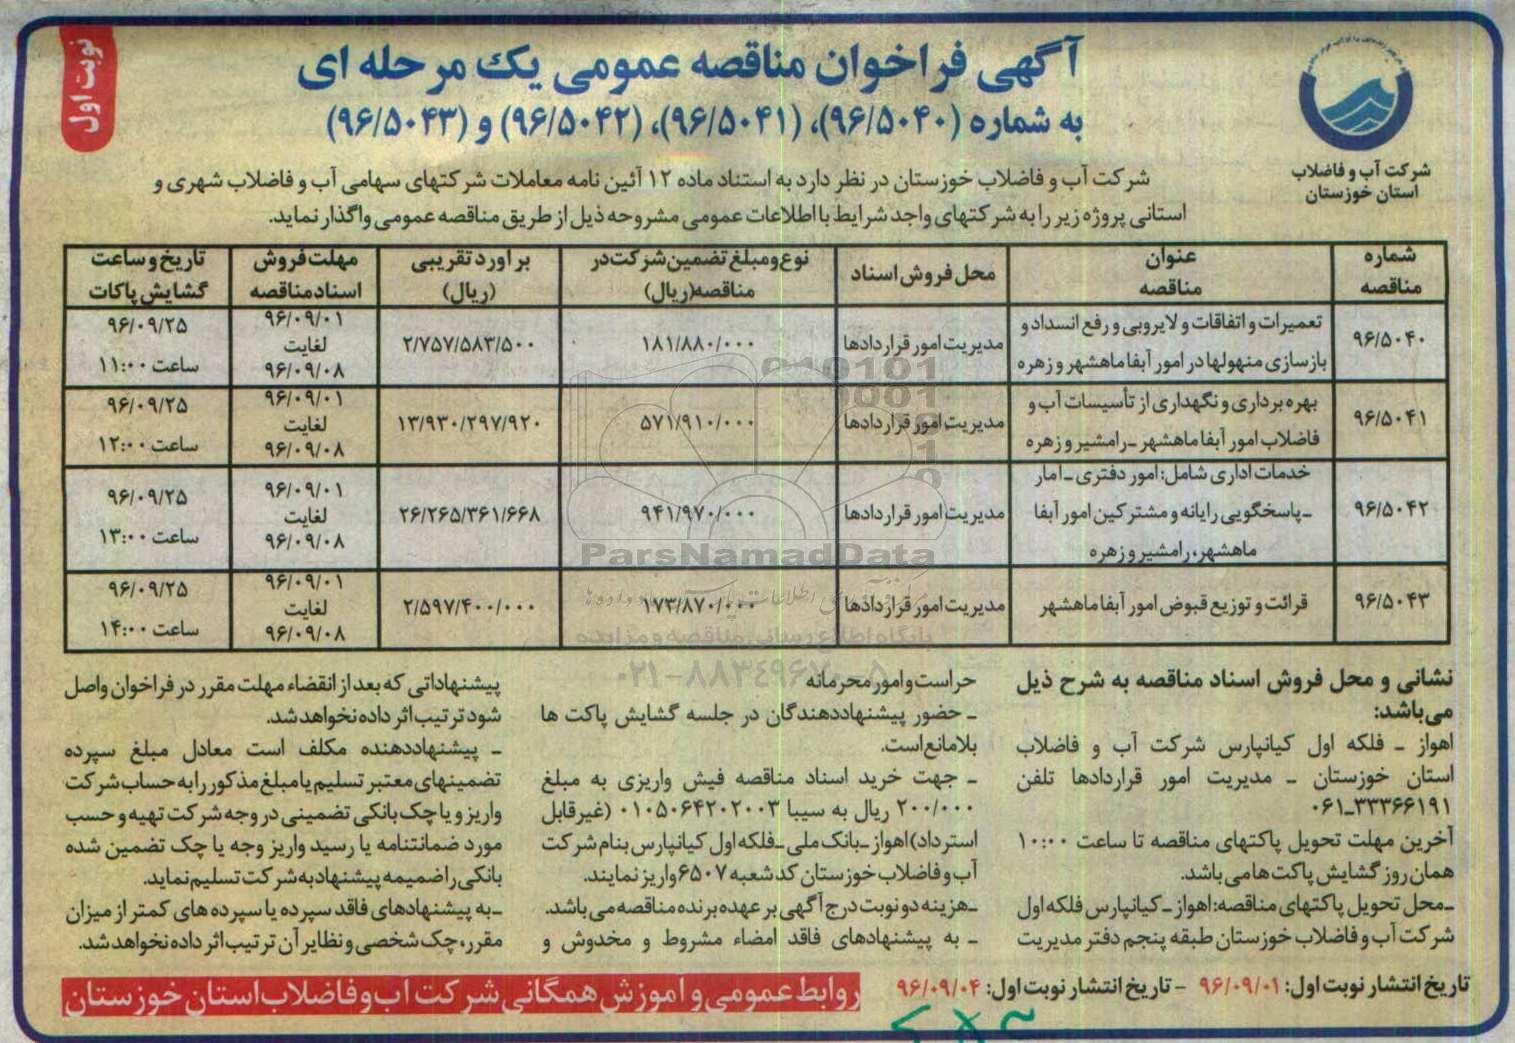 آگهی فراخوان مناقصه عمومی یک مرحله ای
به شماره (۹۶/۵۰۴۰)، (۹۶/۵۰۴۱)، (۹۶/۵۰۴۲) و (۹۶/۵۰۴۳)
نوبت اول
شرکت آب و فاضلاب
استان خوزستان
شرکت آب و فاضلاب خوزستان در نظر دارد به استناد ماده ۱۲ آئین نامه معاملات شرکتهای سهامی آب و فاضلاب شهری و
استانی پروژه زیر را به شرکتهای واجد شرایط با اطلاعات عمومی مشروحه ذیل از طریق مناقصه عمومی واگذار نماید.
شماره مناقصه | عنوان مناقصه | محل فروش اسناد | نوع و مبلغ تضمین شرکت در مناقصه (ریال) | براورد تقریبی (ریال) | مهلت فروش اسناد مناقصه | تاریخ و ساعت گشایش پاکات
۹۶/۵۰۴۰ | تعمیرات و اتفاقات و لایروبی و رفع انسداد و بازسازی منهولها در امور آبفا ماهشهر و زهره | مدیریت امور قراردادها | ۱۸۱/۸۸۰/۰۰۰ | ۲/۷۵۷/۵۸۳/۵۰۰ | ۹۶/۰۹/۰۱ لغایت ۹۶/۰۹/۰۸ | ۹۶/۰۹/۲۵ ساعت ۱۱:۰۰
۹۶/۵۰۴۱ | بهره برداری و نگهداری از تأسیسات آب و فاضلاب امور آبفا ماهشهر ـ رامشیر و زهره | مدیریت امور قراردادها | ۵۷۱/۹۱۰/۰۰۰ | ۱۳/۹۳۰/۲۹۷/۹۲۰ | ۹۶/۰۹/۰۱ لغایت ۹۶/۰۹/۰۸ | ۹۶/۰۹/۲۵ ساعت ۱۲:۰۰
۹۶/۵۰۴۲ | خدمات اداری شامل: امور دفتری ـ امار ـ پاسخگویی رایانه و مشترکین امور آبفا ماهشهر، رامشیر و زهره | مدیریت امور قراردادها | ۹۴۱/۹۷۰/۰۰۰ | ۲۶/۲۶۵/۳۶۱/۶۶۸ | ۹۶/۰۹/۰۱ لغایت ۹۶/۰۹/۰۸ | ۹۶/۰۹/۲۵ ساعت ۱۳:۰۰
۹۶/۵۰۴۳ | قرائت و توزیع قبوض امور آبفا ماهشهر | مدیریت امور قراردادها | ۱۷۳/۸۷۰/۰۰۰ | ۲/۵۹۷/۴۰۰/۰۰۰ | ۹۶/۰۹/۰۱ لغایت ۹۶/۰۹/۰۸ | ۹۶/۰۹/۲۵ ساعت ۱۴:۰۰
ParsNamadData
پایگاه اطلاع رسانی مناقصه و مزایده
۰۲۱-۸۸۳۴۹۶۷۰-۵
نشانی و محل فروش اسناد مناقصه به شرح ذیل
می باشد:
اهواز ـ فلکه اول کیانپارس شرکت آب و فاضلاب
استان خوزستان ـ مدیریت امور قراردادها تلفن
۰۶۱ـ۳۳۳۶۶۱۹۱
آخرین مهلت تحویل پاکتهای مناقصه تا ساعت ۱۰:۰۰
همان روز گشایش پاکت ها می باشد.
ـ محل تحویل پاکتهای مناقصه: اهواز ـ کیانپارس فلکه اول
شرکت آب و فاضلاب خوزستان طبقه پنجم دفتر مدیریت
حراست و امور محرمانه
ـ حضور پیشنهاددهندگان در جلسه گشایش پاکت ها
بلامانع است.
ـ جهت خرید اسناد مناقصه فیش واریزی به مبلغ
۲۰۰/۰۰۰ ریال به سیبا ۰۱۰۵۰۶۴۲۰۲۰۰۳ (غیرقابل
استرداد) اهواز ـ بانک ملی ـ فلکه اول کیانپارس بنام شرکت
آب و فاضلاب خوزستان کد شعبه ۶۵۰۷ واریز نمایند.
ـ هزینه دو نوبت درج آگهی بر عهده برنده مناقصه می باشد.
ـ به پیشنهادهای فاقد امضاء مشروط و مخدوش و
پیشنهاداتی که بعد از انقضاء مهلت مقرر در فراخوان واصل
شود ترتیب اثر داده نخواهد شد.
ـ پیشنهاددهنده مکلف است معادل مبلغ سپرده
تضمینهای معتبر تسلیم یا مبلغ مذکور را به حساب شرکت
واریز و یا چک بانکی تضمینی در وجه شرکت تهیه و حسب
مورد ضمانتنامه یا رسید واریز وجه یا چک تضمین شده
بانکی را ضمیمه پیشنهاد به شرکت تسلیم نماید.
ـ به پیشنهادهای فاقد سپرده یا سپرده های کمتر از میزان
مقرر، چک شخصی و نظایر آن ترتیب اثر داده نخواهد شد.
تاریخ انتشار نوبت اول: ۹۶/۰۹/۰۱ - تاریخ انتشار نوبت اول: ۹۶/۰۹/۰۴
روابط عمومی و اموزش همگانی شرکت اب و فاضلاب استان خوزستان